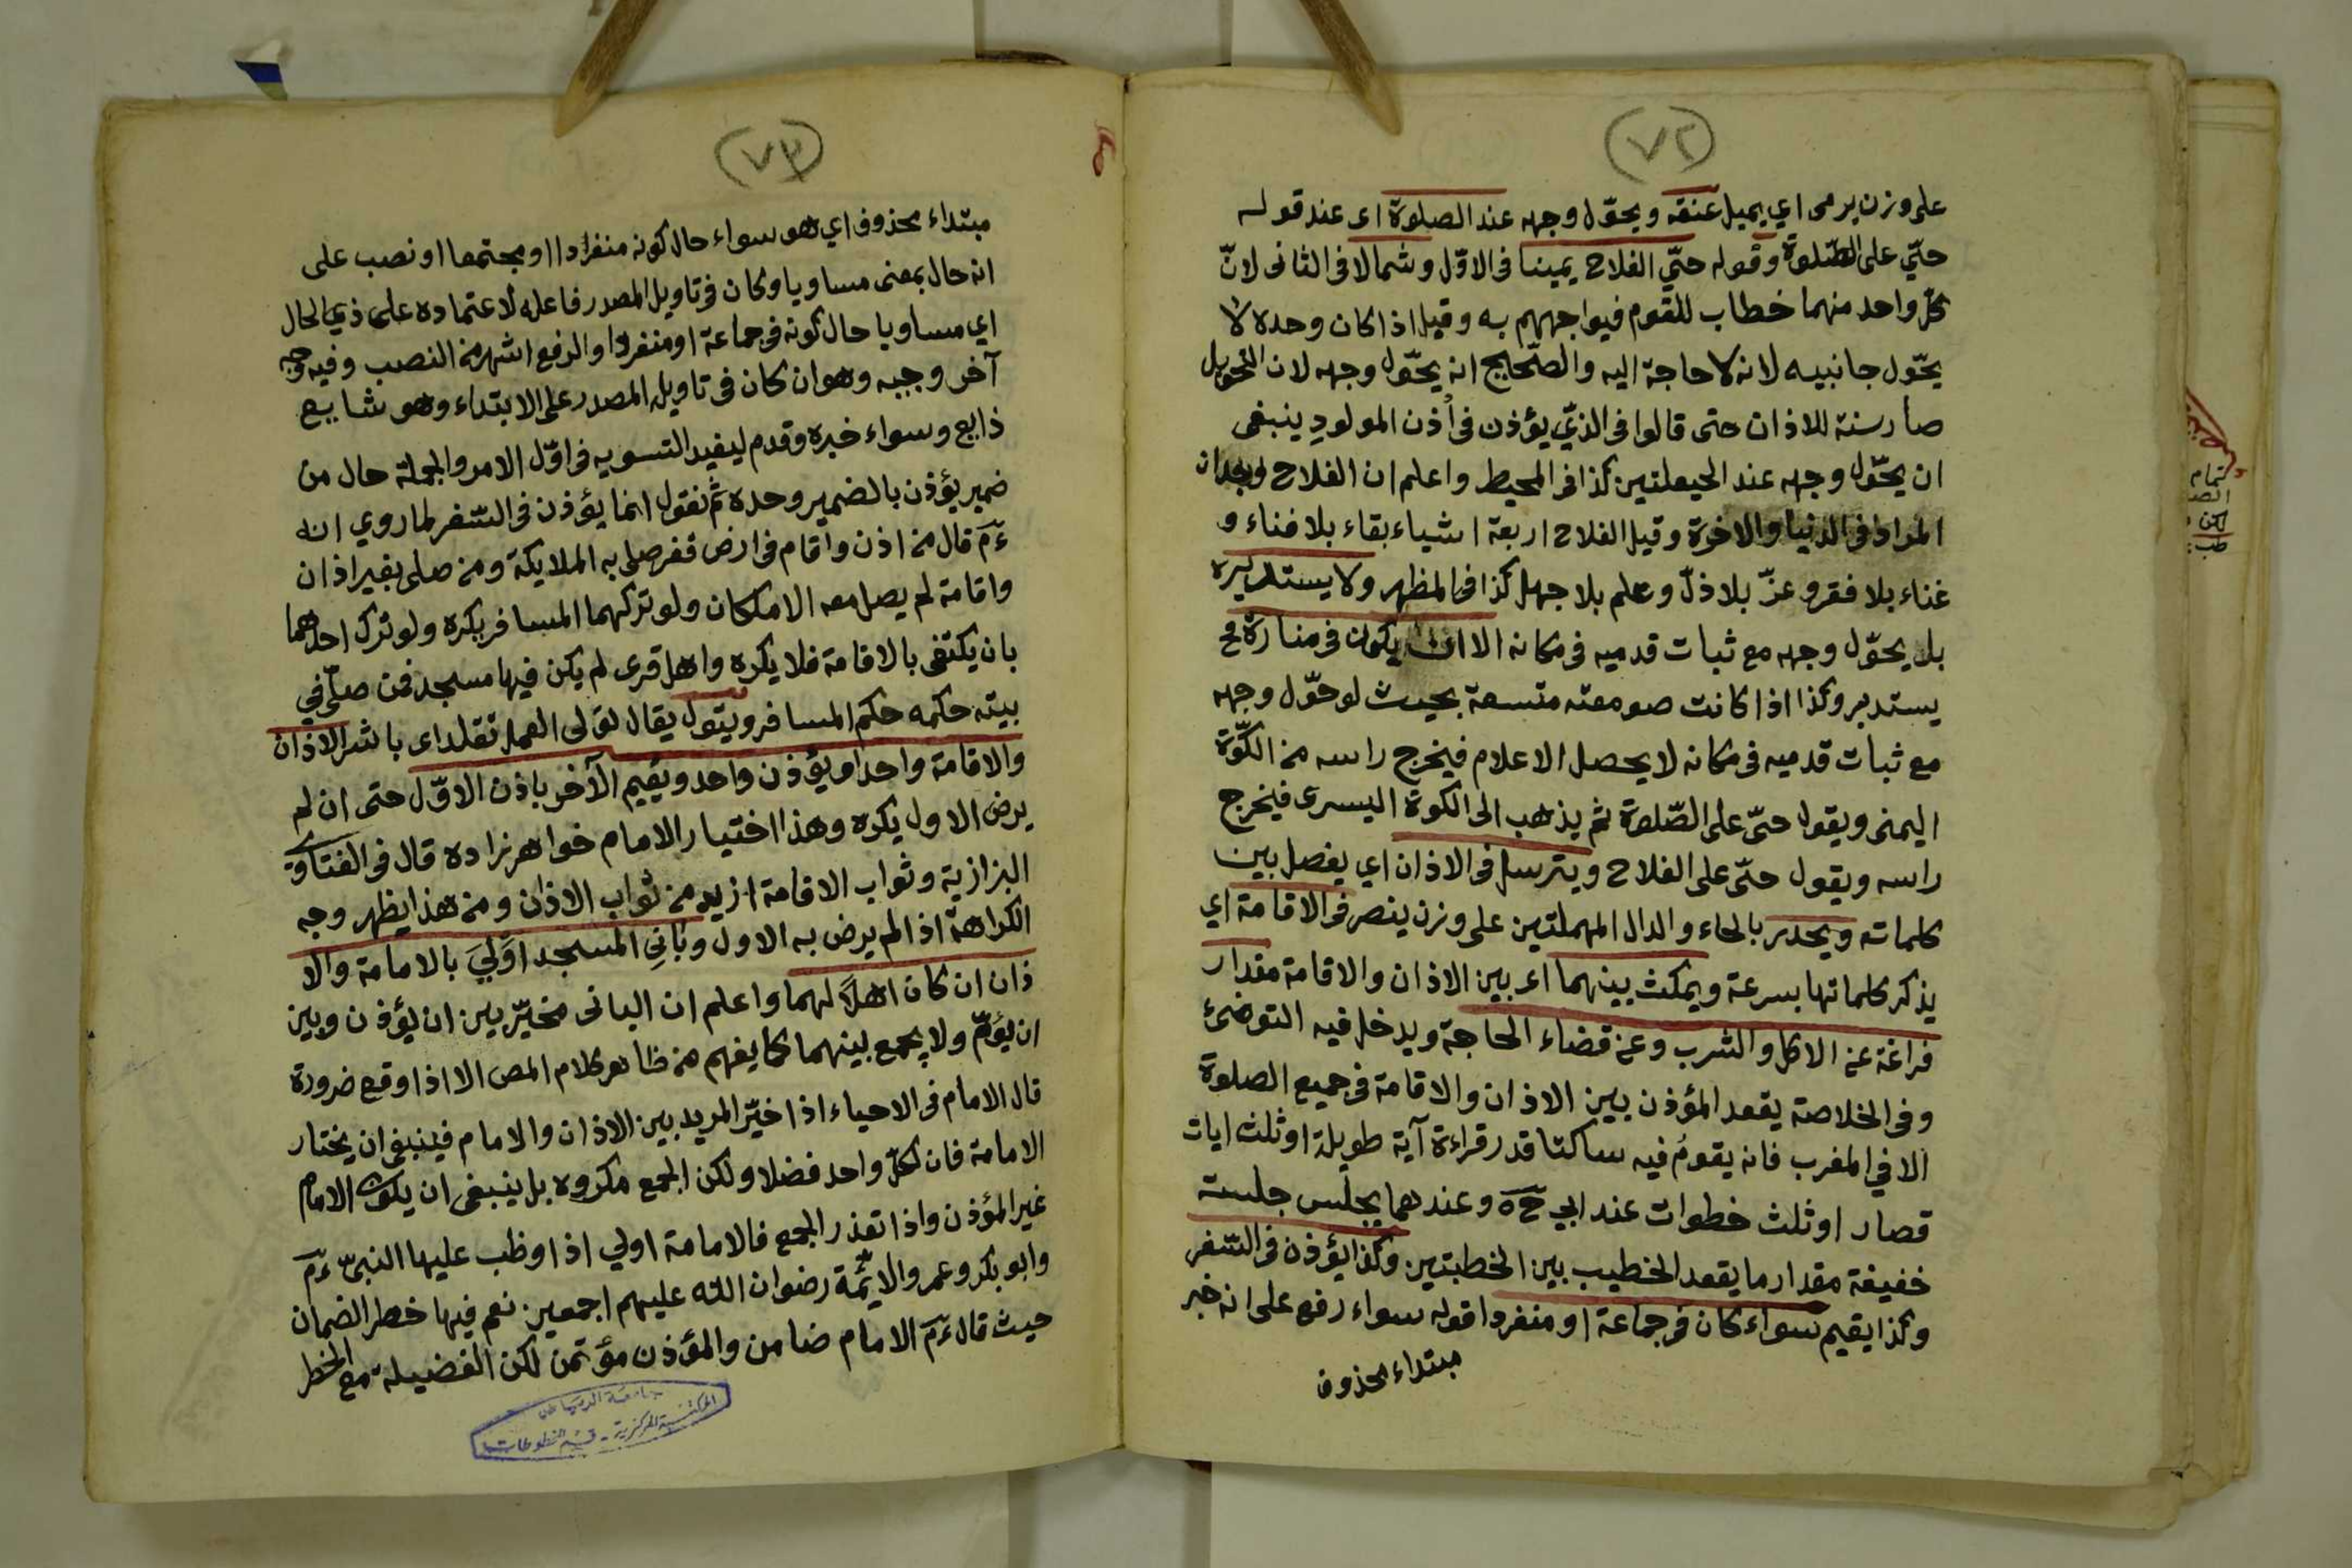 (٧٢)
على وزن يرمى اي يميل عنقه ويحوّل وجهه عند الصلوة اى عند قوله
حيّ على الصّلوة وقوله حيّ الفلاح يمينا فى الاوّل وشمالا فى الثانى لانّ
كلّ واحد منهما خطاب للقوم فيواجههم به وقيل اذا كان وحده لا
يحّول جانبيه لانه لا حاجة اليه والصّحايح انه يحّول وجهه لان التحويل
صار سنة للاذان حتى قالوا فى الذّي يؤذن فى أذن المولود ينبغى
ان يحّول وجهه عند الحيعلتين كذا فى المحيط واعلم ان الفلاح
المراد فى الدنيا والاخرة وقيل الفلاح اربعة اشياء بقاء بلا فناء و
غناء بلا فقر وعزّ بلا ذلّ وعلم بلا جهل كذا فى المظهر ولا يستدبره
بل يحّول وجهه مع ثبات قدميه فى مكانه الا ان يكون فى منارة
يستدبر وكذا اذا كانت صومعته متسعة بحيث لو حّول وجهه
مع ثبات قدميه فى مكانه لا يحصل الاعلام فيخرج راسه من الكّوة
اليمنى ويقول حيّ على الصّلوة ثم يذهب الى الكوة اليسرى فيخرج
راسه ويقول حيّ على الفلاح ويترسل فى الاذان اي يفصل بين
كلماته ويحدر بالحاء والدال المهملتين على وزن ينصر فى الاقامة اي
يذكر كلماتها بسرعة ويمكث بينهما اى بين الاذان والاقامة مقدار
فراغة عن الاكل والشرب وعن قضاء الحاجة ويدخل فيه التوضئ
وفى الخلاصة يقعد المؤذن بين الاذان والاقامة فى جميع الصلوة
الا في المغرب فانه يقومُ فيه ساكتا قدر قراءة آية طويلة او ثلث ايات
قصار او ثلث خطوات عند ابي حَ ه وعندهما يجلس جلسة
خفيفة مقدار ما يقعد الخطيب بين الخطبتين وكذا يؤذن فى السّفر
وكذا يقيم سواء كان فى جماعة او منفردا قوله سواء رفع على انه خبر
مبتداء محذوف
(٧٣)
مبتداء محذوف اي هو سواء حال كونه منفردا او مجتمعا او نصب على
انه حال بمعنى مساويا وكان فى تاويل المصدر فاعله لاعتماده على ذي الحال
اي مساويا حال كونه فى جماعة او منفردا والرفع اشهر من النصب وفيه وجه
آخر وجيه وهو ان كان فى تاويل المصدر على الابتداء وهو شايع
ذايع وسواء خبره وقدم ليفيد التسويه فى اوّل الامر والجملة حال من
ضمير يؤذن بالضمير وحده ثم نقول انما يؤذن فى السّفر لما روي انه
ءَمَ قال من اذن واقام فى ارض قفر صلى به الملايكة ومن صلى بغير اذان
واقامة لم يصل معه الا ملكان ولو تركهما المسافر يكره ولو ترك احدهما
بان يكتفى بالاقامة فلا يكره واهل قرى لم يكن فيها مسجد فمن صلّى في
بيته حكمه حكم المسافر ويتول يقال تولى العمل تقلد اى باشر الاذان
والاقامة واحد او يؤذن واحد ويقيم الآخر باذن الاوّل حتى ان لم
يرض الاول يكره وهذا اختيار الامام خواهر زاده قال فى الفتاوى
البزازية وثواب الاقامة ازيد من ثواب الاذان ومن هذا يظهر وجه
الكراهة اذا لم يرض به الاول وبانِي المسجد اوْلَي بالامامة والا
ذان ان كان اهلًا لهما واعلم ان البانى مخيّر بين ان يؤذن وبين
ان يؤمّ ولا يجمع بينهما كما يفهم من ظاهر كلام المص الا اذا وقع ضرورة
قال الامام فى الاحياء اذا خيّر المريد بين الاذان والامام فينبغى ان يختار
الامامة فان لكلّ واحد فضلا ولكن الجمع مكروه بل ينبغى ان يكون الامام
غير المؤذن واذا تعذر الجمع فالامامة اولي اذا وظب عليها النبىّ ءَمَ
وابو بكر وعمر والايمّة رضوان الله عليهم اجمعين نعم فيها خطر الضمان
حيث قال ءَمَ الامام ضامن والمؤذن مؤتمن لكن الفضيلة مع الخطر
جامعة الرياض
المكتبة المركزية - قسم المخطوطات
تمام